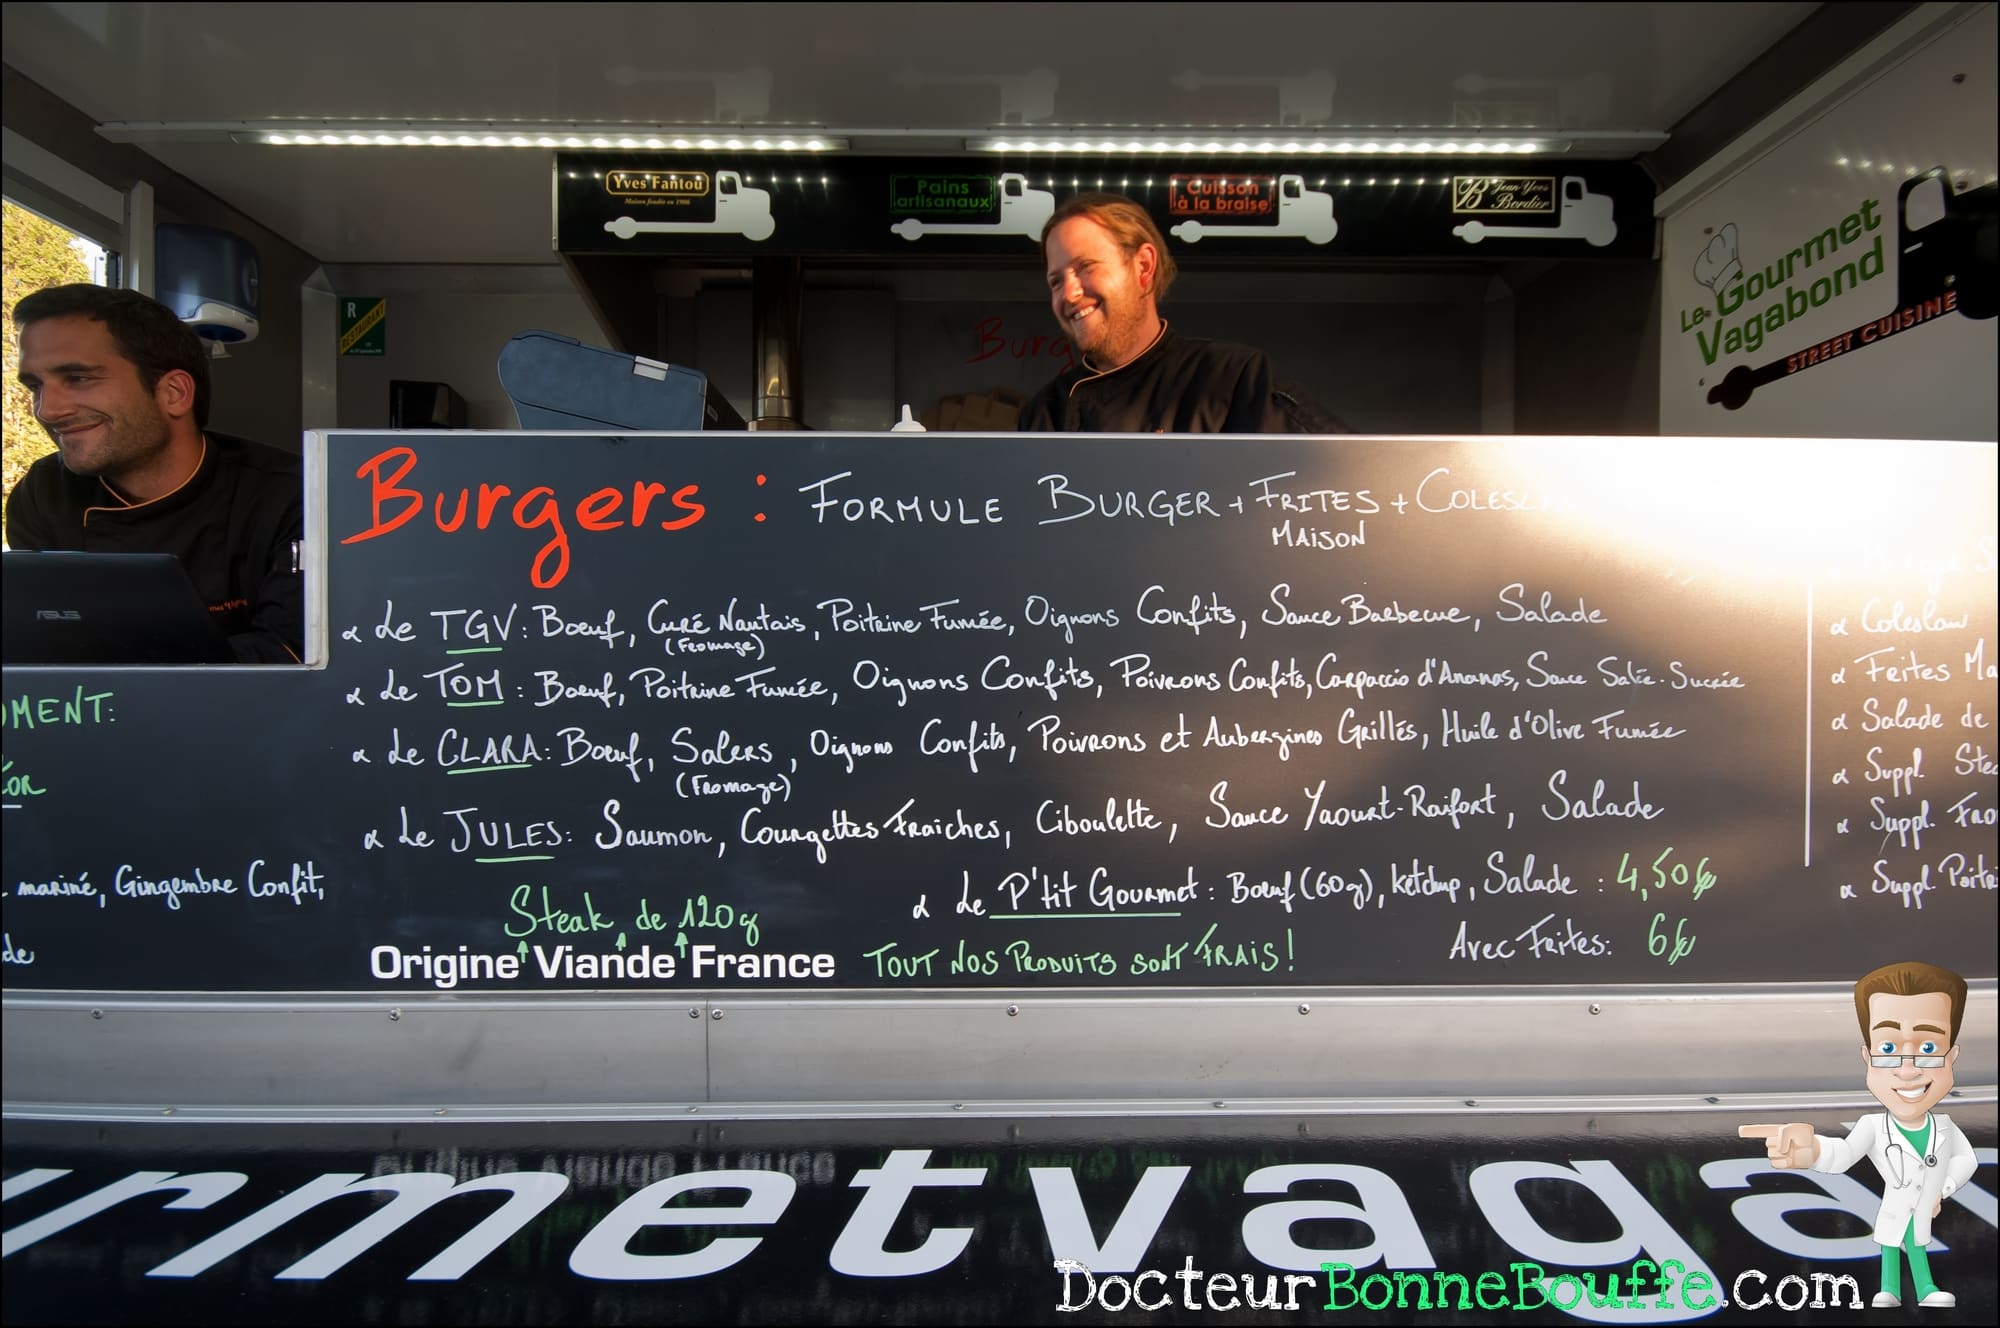 Yves Fantou
Maison fondée en 1986
Pains
artisanaux
Cuisson
à la braise
B Jean-Yves
Bordier
Le Gourmet
Vagabond
STREET CUISINE
R
RESTAURANT
Burg
ASUS
Burgers : FORMULE BURGER + FRITES + COLESL
MAISON
Le TGV : Boeuf, Curé Nantais, Poitrine Fumée, Oignons Confits, Sauce Barbecue, Salade
(Fromage)
Le TOM : Boeuf, Poitrine Fumée, Oignons Confits, Poivrons Confits, Carpaccio d'Ananas, Sauce Salée-Sucrée
Le CLARA : Boeuf, Salers, Oignons Confits, Poivrons et Aubergines Grillés, Huile d'Olive Fumée
(Fromage)
Le JULES : Saumon, Courgettes Fraîches, Ciboulette, Sauce Yaourt-Raifort, Salade
Le P'tit Gourmet : Boeuf (60g), ketchup, Salade : 4,50€
Avec Frites : 6€
Steak de 120g
Origine Viande France
TOUT NOS PRODUITS SONT FRAIS !
OMENT :
mariné, Gingembre Confit,
de
Coleslaw
Frites Ma
Salade de
Suppl. Stea
Suppl. Fro
Suppl. Poitri
rmetvaga
DocteurBonneBouffe.com